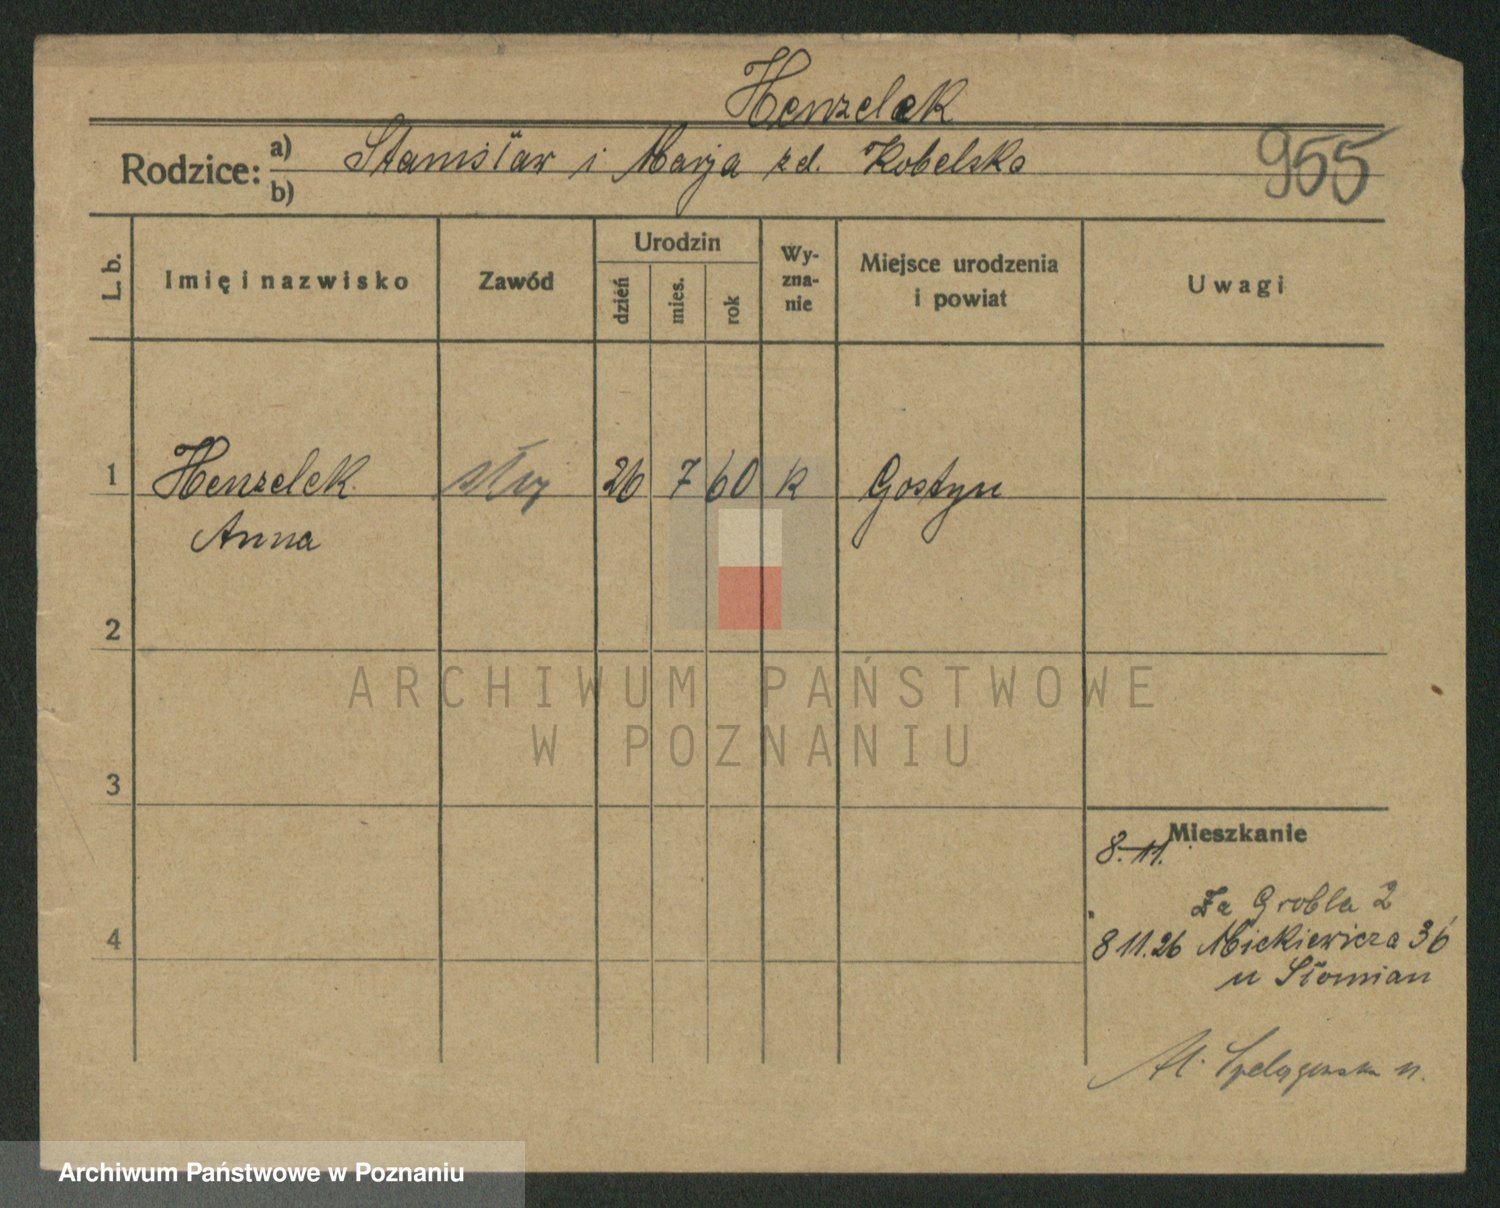 Henzelek
Rodzice: a) Stanisław i Marja zd. Kobelska
b)
955
L. b.
Imię i nazwisko
Zawód
Urodzin
dzień
mies.
rok
Wy-
zna-
nie
Miejsce urodzenia
i powiat
Uwagi
1 Henzelek służ 26 7 60 k Gostyn
Anna
2
ARCHIWUM PAŃSTWOWE
W POZNANIU
3
Mieszkanie
8.11.
Za Grobla 2
4
8 11.26 Mickiewicza 36
u Słomian
Al. Szelągowska 11.
Archiwum Państwowe w Poznaniu